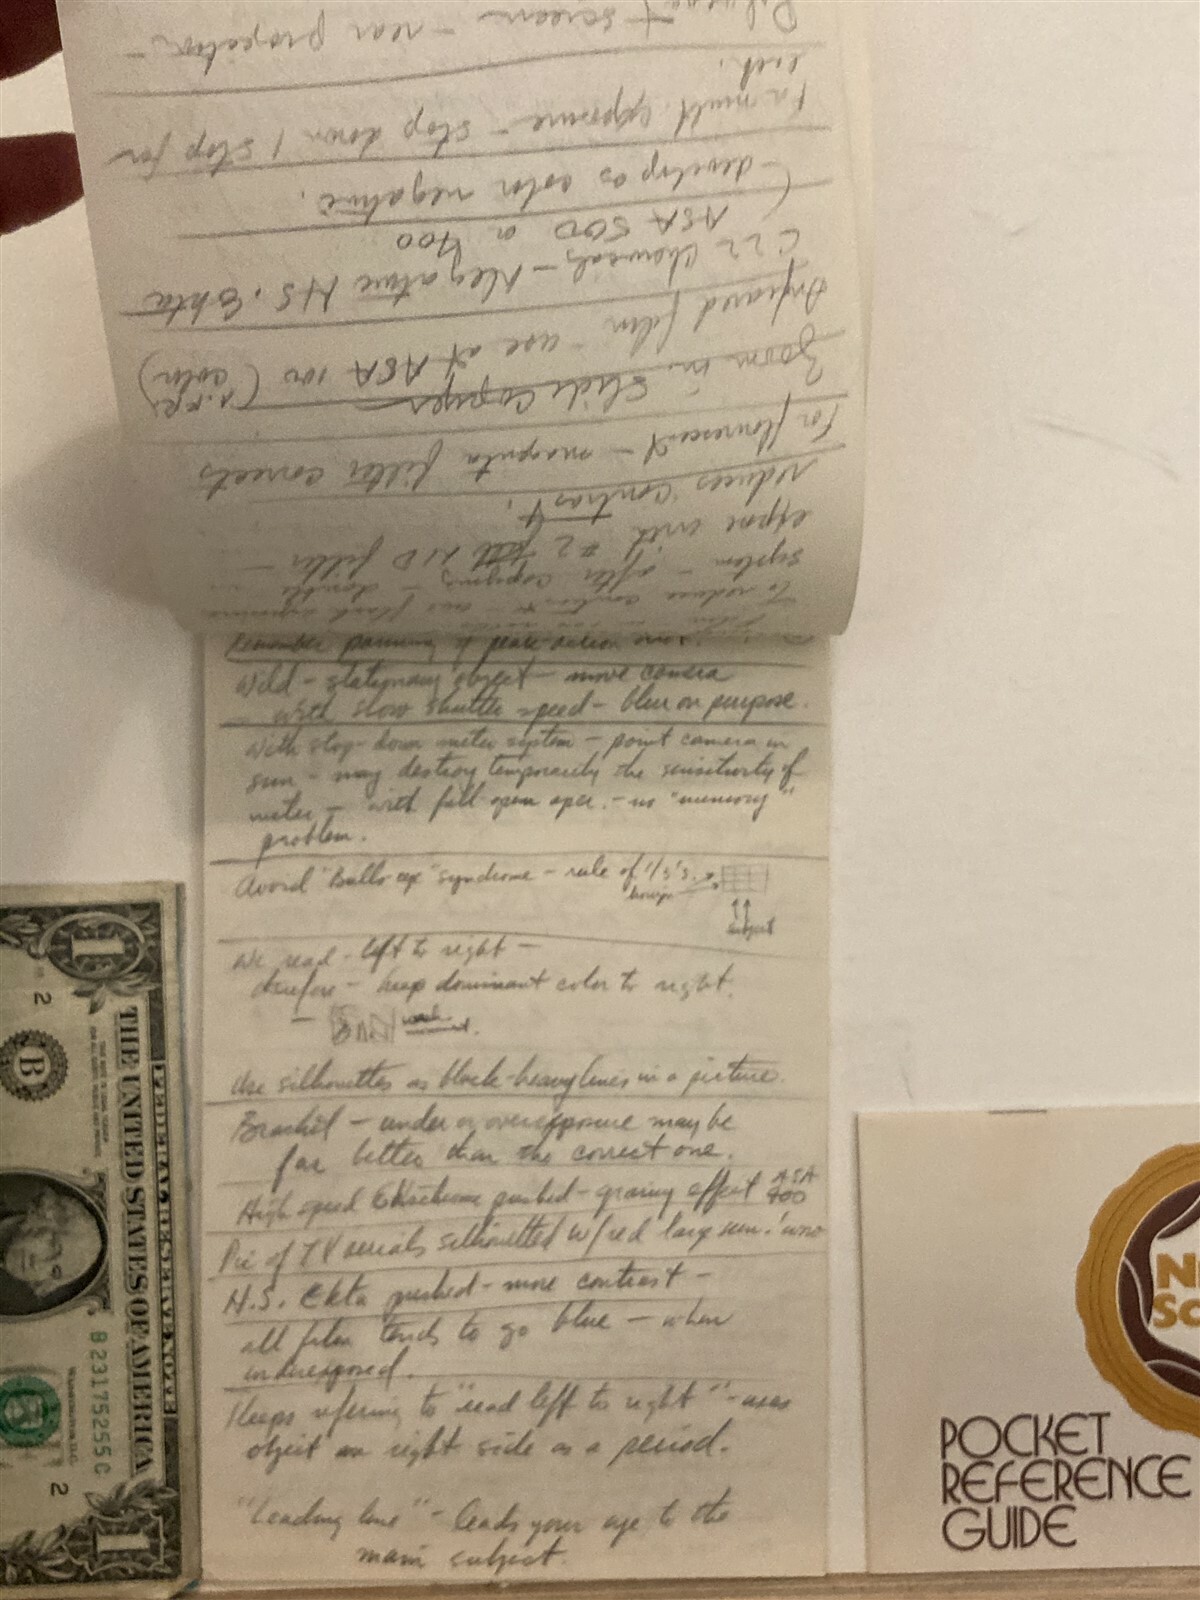 + screen - rear projection -
each.
For mult. exposure - stop down 1 stop for
(- develop as color negative.
ASA 500 or 400
C22 chemicals - Negative H.S. Ekta
Infrared film - use at ASA 100 (color)
Zoom in. Slide Copyer
For flourescent - magenta filter corrects
reduces contrast.
expose with #2 ND filter -
system - after copying - double
To reduce contrast - use flash exposure
Remember panning & peak action
Wild - stationary object - move camera
with slow shutter speed - blur on purpose.
With stop-down meter system - point camera in
sun - may destroy temporarily the sensitivity of
meter - with full open aper. - no "memory"
problem.
Avoid "Bulls eye" syndrome - rule of 1/3's.
horizon
subject
We read - left to right -
therefore - keep dominant color to right.
-
Use silhouettes as black-heavy lines in a picture.
Bracket - under or overexposure may be
far better than the correct one.
High speed Ektachrome pushed - grainy effect ASA
400
Pic of TV aerials silhouetted w/red large sun!
H.S. Ekta pushed - more contrast -
all film tends to go blue - when
underexposed.
Keeps refering to "read left to right" - uses
object on right side as a period.
"Leading line" - leads your eye to the
main subject.
FEDERAL RESERVE NOTE
THE UNITED STATES OF AMERICA
B 23175255 C
WASHINGTON, D.C.
1
2
B
2
1
POCKET
REFERENCE
GUIDE